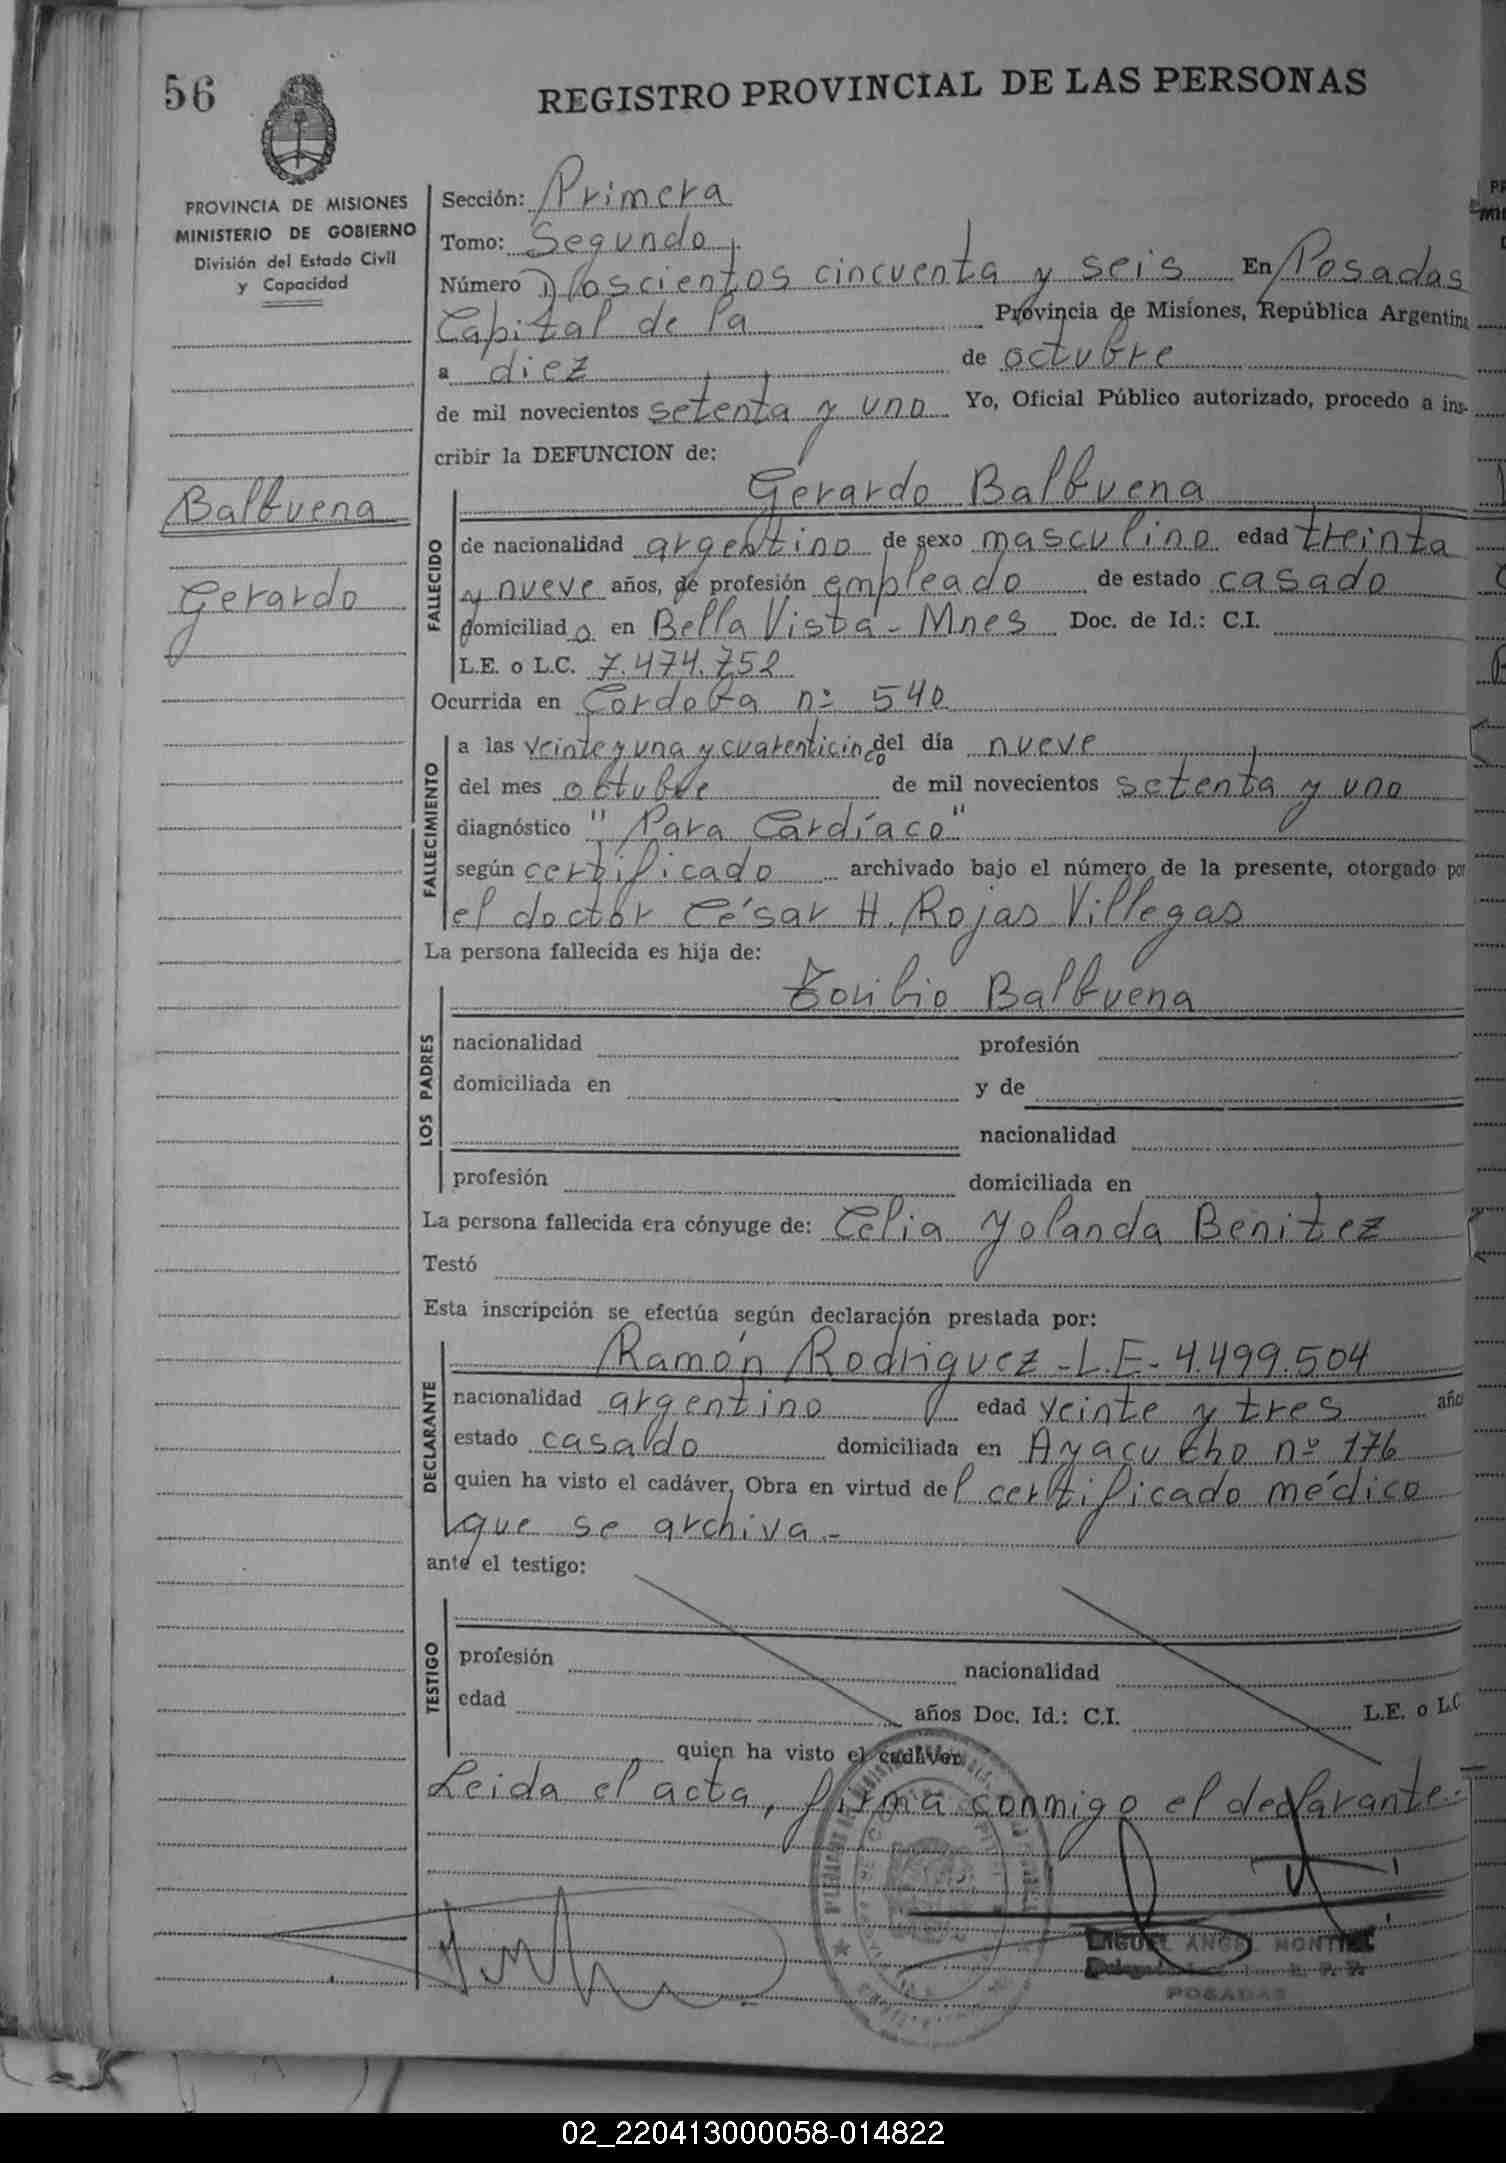 56
REGISTRO PROVINCIAL DE LAS PERSONAS
PROVINCIA DE MISIONES
MINISTERIO DE GOBIERNO
División del Estado Civil
y Capacidad
Balbuena
Gerardo
Sección: Primera
Tomo: Segundo
Número Doscientos cincuenta y seis En Posadas
Capital de la Provincia de Misiones, República Argentina
a diez de octubre
de mil novecientos setenta y uno Yo, Oficial Público autorizado, procedo a ins-
cribir la DEFUNCION de:
FALLECIDO
Gerardo Balbuena
de nacionalidad argentino de sexo masculino edad treinta
y nueve años, de profesión empleado de estado casado
domiciliado en Bella Vista - Mnes Doc. de Id.: C.I.
L.E. o L.C. 7.474.752
Ocurrida en Cordoba nº 540
FALLECIMIENTO
a las veinte y una y cuarenticinco del día nueve
del mes octubre de mil novecientos setenta y uno
diagnóstico "Para Cardíaco"
según certificado archivado bajo el número de la presente, otorgado por
el doctor César H. Rojas Villegas
La persona fallecida es hija de:
LOS PADRES
Balbuena
nacionalidad profesión
domiciliada en y de
nacionalidad
profesión domiciliada en
La persona fallecida era cónyuge de: Celia Yolanda Benitez
Testó
Esta inscripción se efectúa según declaración prestada por:
DECLARANTE
Ramón Rodriguez - L.E - 4.499.504
nacionalidad argentino edad veinte y tres año
estado casado domiciliada en Ayacucho nº 176
quien ha visto el cadáver, Obra en virtud del certificado médico
que se archiva.-
ante el testigo:
TESTIGO
profesión nacionalidad
edad años Doc. Id.: C.I. L.E. o L.C
quien ha visto el cadáver
Leida el acta, firma conmigo el declarante.-
MIGUEL ANGEL MONTIEL
POSADAS
02_220413000058-014822